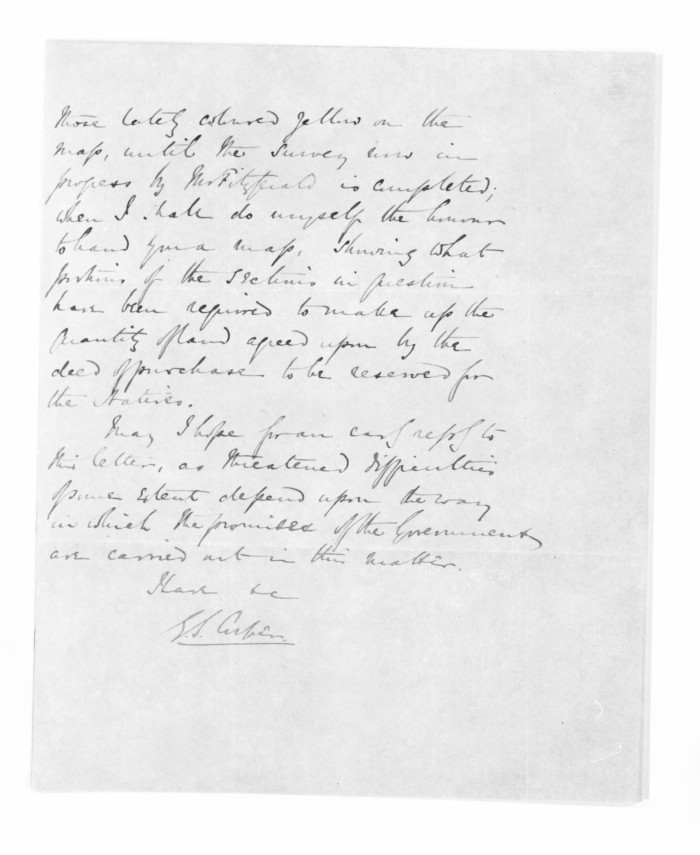 those lately coloured yellow on the
map, until the survey now in
progress by Mr Fitzgerald is completed;
when I shall do myself the honour
to hand you a map, showing what
portions of the sections in question
have been required to make up the
quantity of land agreed upon by the
deed of purchase to be reserved for
the Natives.
May I hope for an early reply to
this letter, as threatened difficulties
of some extent depend upon the way
in which the promises of the Government
are carried out in this matter.
I have &c
G.S. Cooper.